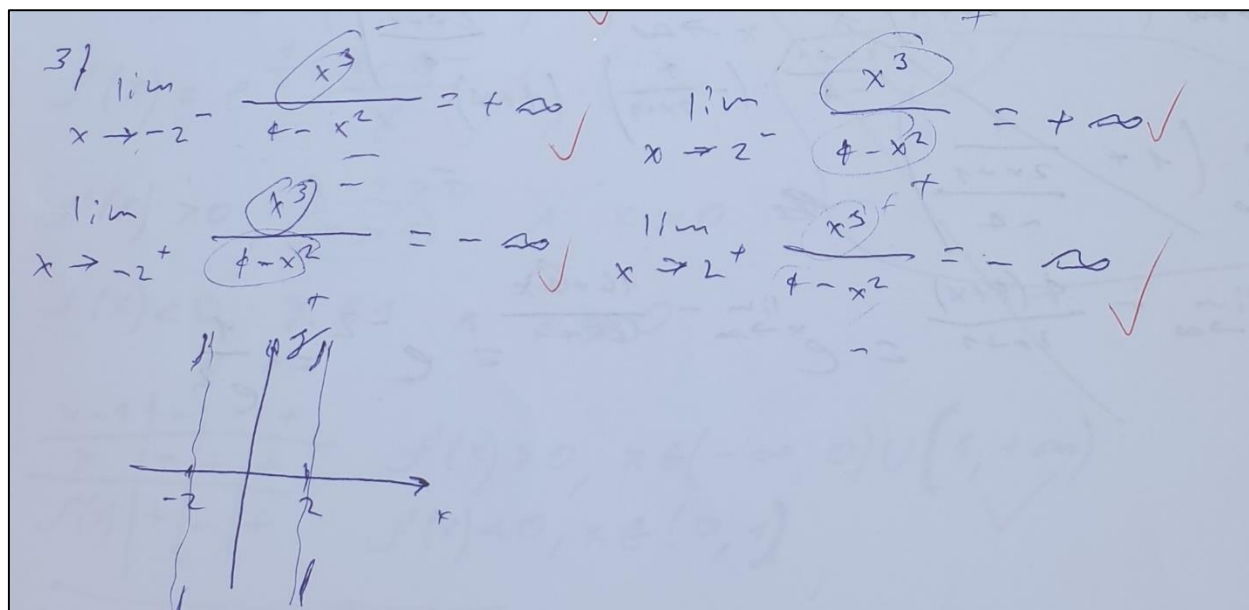 3) lim x → -2⁻ x³ / 4 - x² = + ∞
lim x → 2⁻ x³ / 4 - x² = + ∞
lim x → -2⁺ x³ / 4 - x² = - ∞
lim x → 2⁺ x³ / 4 - x² = - ∞
y
-2 2
x